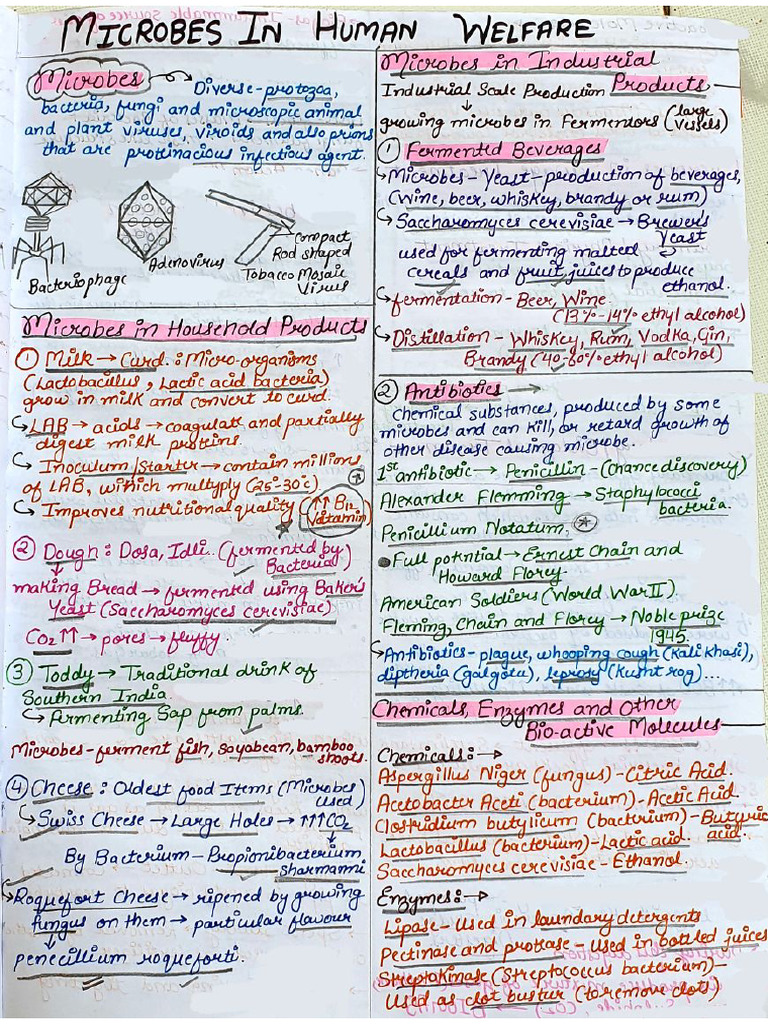 MICROBES IN HUMAN WELFARE
Microbes → Diverse-protozoa,
bacteria, fungi and microscopic animal
and plant viruses, viroids and also prions
that are protinacious infectious agent.
Bacteriophage
Adenovirus
Compact
Rod shaped
Tobacco Mosaic
Virus
Microbes in Household Products
① Milk → Curd : Micro-organisms
(Lactobacillus, Lactic acid bacteria)
grow in milk and convert to curd.
↪ LAB → acids → coagulate and partially
digest milk proteins.
↪ Inoculum/Starter → contain millions
of LAB, which multyply (25°-30°c)
↪ Improves nutritional quality (↑↑ B12
Vatamin)
② Dough : Dosa, Idli.. (fermented by
Bacteria)
making Bread → fermented using Baker's
Yeast (Saccharomyces cerevisiae)
CO2 ↑↑ → pores → fluffy.
③ Toddy → Traditional drink of
Southern India
↪ Fermenting Sap from palms.
Microbes-ferment fish, soyabean, bamboo
shoots.
④ Cheese : Oldest food Items (Microbes
used)
↪ Swiss Cheese → Large Holes → ↑↑↑CO2
By Bacterium - Propionibacterium
sharmanni
↪ Roquefort Cheese → ripened by growing
fungus on them → particular flavour
penecillium roqueforti.
Microbes in Industrial
Products
Industrial Scale Production
growing microbes in Fermentors (large
vessels)
① Fermented Beverages
↪ Microbes - Yeast - production of beverages,
(wine, beer, whiskey, brandy or rum)
↪ Saccharomyces cerevisiae → Brewer's
Yeast
used for fermenting malted
cereals and fruit juices to produce
ethanol.
↪ fermentation - Beer, Wine
(13%-14% ethyl alcohol)
↪ Distillation - Whiskey, Rum, Vodka, Gin,
Brandy (40-60% ethyl alcohol)
② Antibiotics →
Chemical substances, produced by some
microbes and can kill, or retard growth of
other disease causing microbe.
1st antibiotic → Penicillin - (chance discovery)
Alexander Flemming → Staphylococci
bacteria.
Penicillium Notatum.
Full potential → Ernest Chain and
Howard Florey.
American Soldiers (World War II).
Fleming, Chain and Florey → Noble prize
1945.
↪ Antibiotics - plague, whooping cough (Kali khasi),
diptheria (galgotu), leprosy (kusht rog)...
Chemicals, Enzymes and Other
Bio-active Molecules
Chemicals: →
Aspergillus Niger (fungus) - Citric Acid.
Acetobacter Aceti (bacterium) - Acetic Acid.
Clostridium butylicum (bacterium) - Butyric
acid.
Lactobacillus (bacterium) - Lactic acid.
Saccharomyces cerevisiae - Ethanol.
Enzymes: →
Lipase - Used in laundary detergents
Pectinase and protease - Used in bottled juices
Streptokinase (Streptococcus bacterium) -
Used as clot bustur (to remove clots)